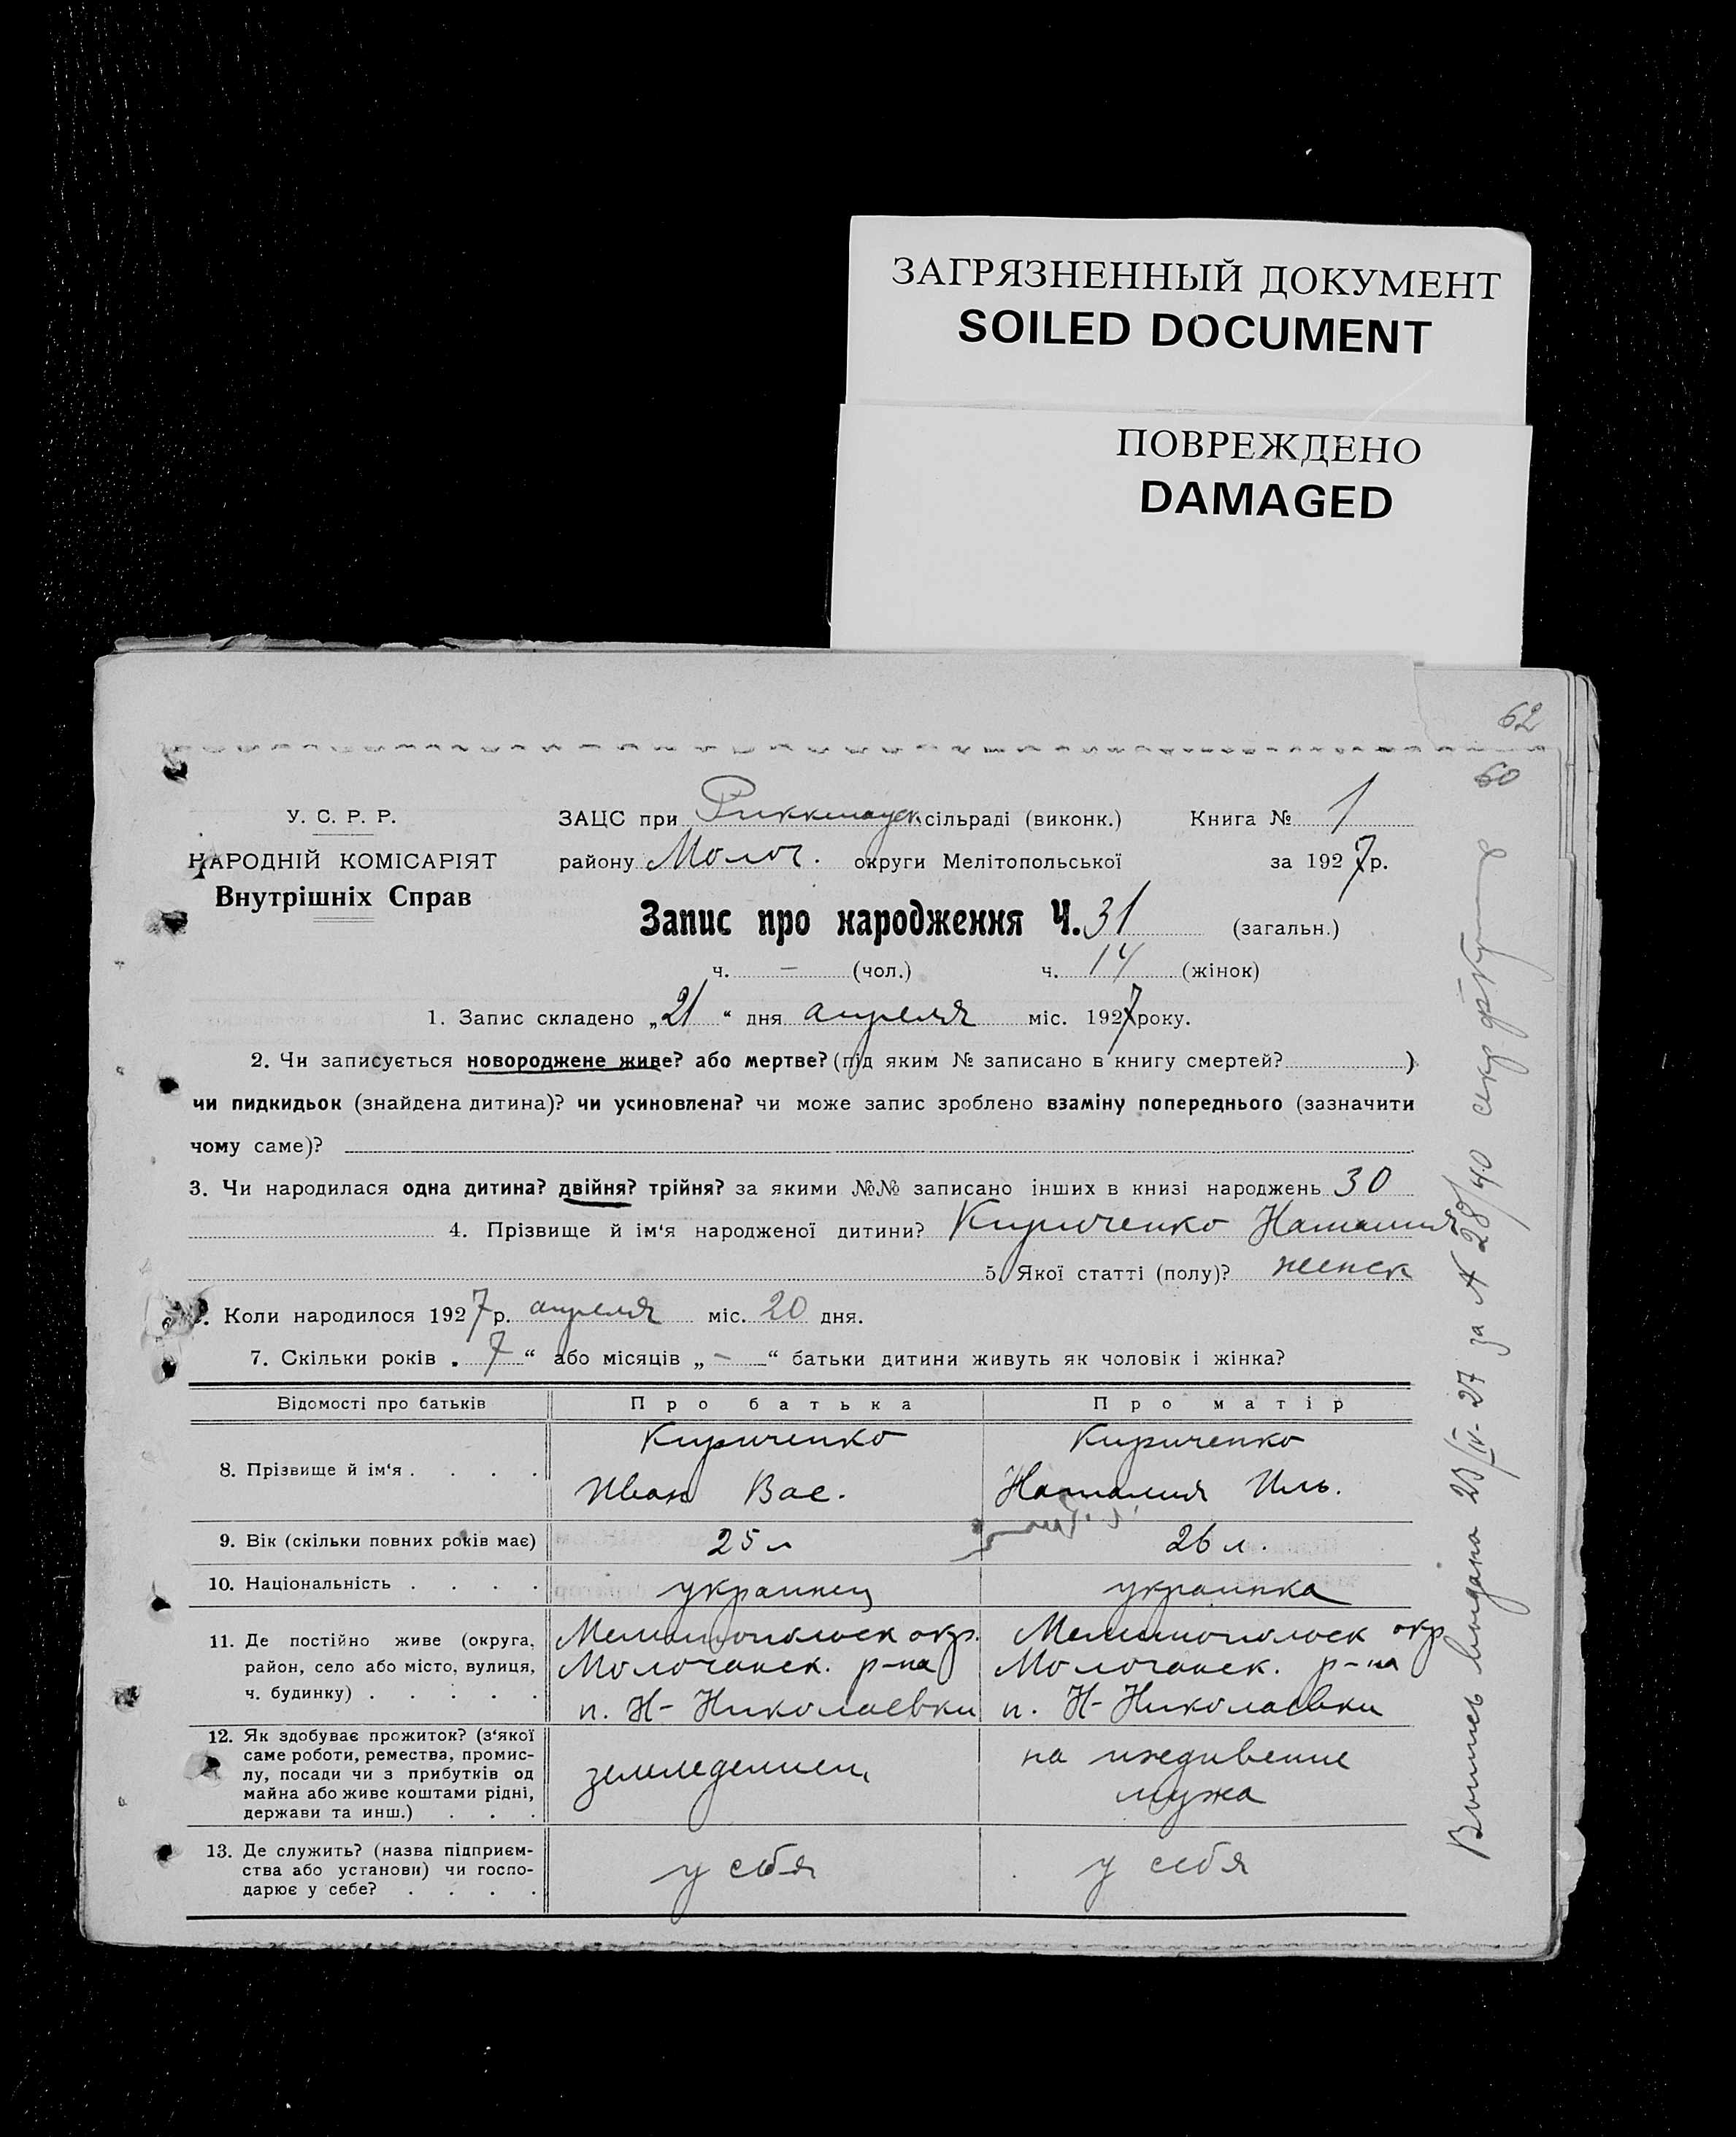 ЗАГРЯЗНЕННЫЙ ДОКУМЕНТ
SOILED DOCUMENT
ПОВРЕЖДЕНО
DAMAGED
62
60
У. С. Р. Р.
НАРОДНІЙ КОМІСАРІЯТ
Внутрішніх Справ
ЗАЦС при сільраді (виконк.) Книга № 1
району Молоч. округи Мелітопольської за 1927 р.
Запис про народження Ч. 31 (загальн.)
ч. – (чол.) ч. 14 (жінок)
1. Запис складено „21“ дня апреля міс. 1927 року.
2. Чи записується новороджене живе? або мертве? (під яким № записано в книгу смертей? )
чи пидкидьок (знайдена дитина)? чи усиновлена? чи може запис зроблено взаміну попереднього (зазначити
чому саме)?
3. Чи народилася одна дитина? двійня? трійня? за якими №№ записано інших в книзі народжень 30
4. Прізвище й ім‘я народженої дитини? Кириченко Наталия
5. Якої статті (полу)? женск
Коли народилося 1927 р. апреля міс. 20 дня.
7. Скільки років „ 7 “ або місяців „ – “ батьки дитини живуть як чоловік і жінка?
Відомості про батьків Про батька Про матір
8. Прізвище й ім‘я . . . .
Кириченко
Иван Вас.
Кириченко
Наталия Иль.
9. Вік (скільки повних років має) 25 л 26 л.
10. Національність . . . . украинец украинка
11. Де постійно живе (округа,
район, село або місто, вулиця,
ч. будинку) . . . . .
Мелитополск окр.
Молочанск. р-на
п. Н-Николаевки
Мелитополск окр
Молочанск. р-на
п. Н-Николаевки
12. Як здобуває прожиток? (з‘якої
саме роботи, ремества, промис-
лу, посади чи з прибутків од
майна або живе коштами рідні,
держави та инш.) . . .
земледелием
на иждивение
мужа
13. Де служить? (назва підприєм-
ства або установи) чи госпо-
дарює у себе? . . . .
у себя
у себя
Выпись выдана 23/IV-27 за № 28/40 секр